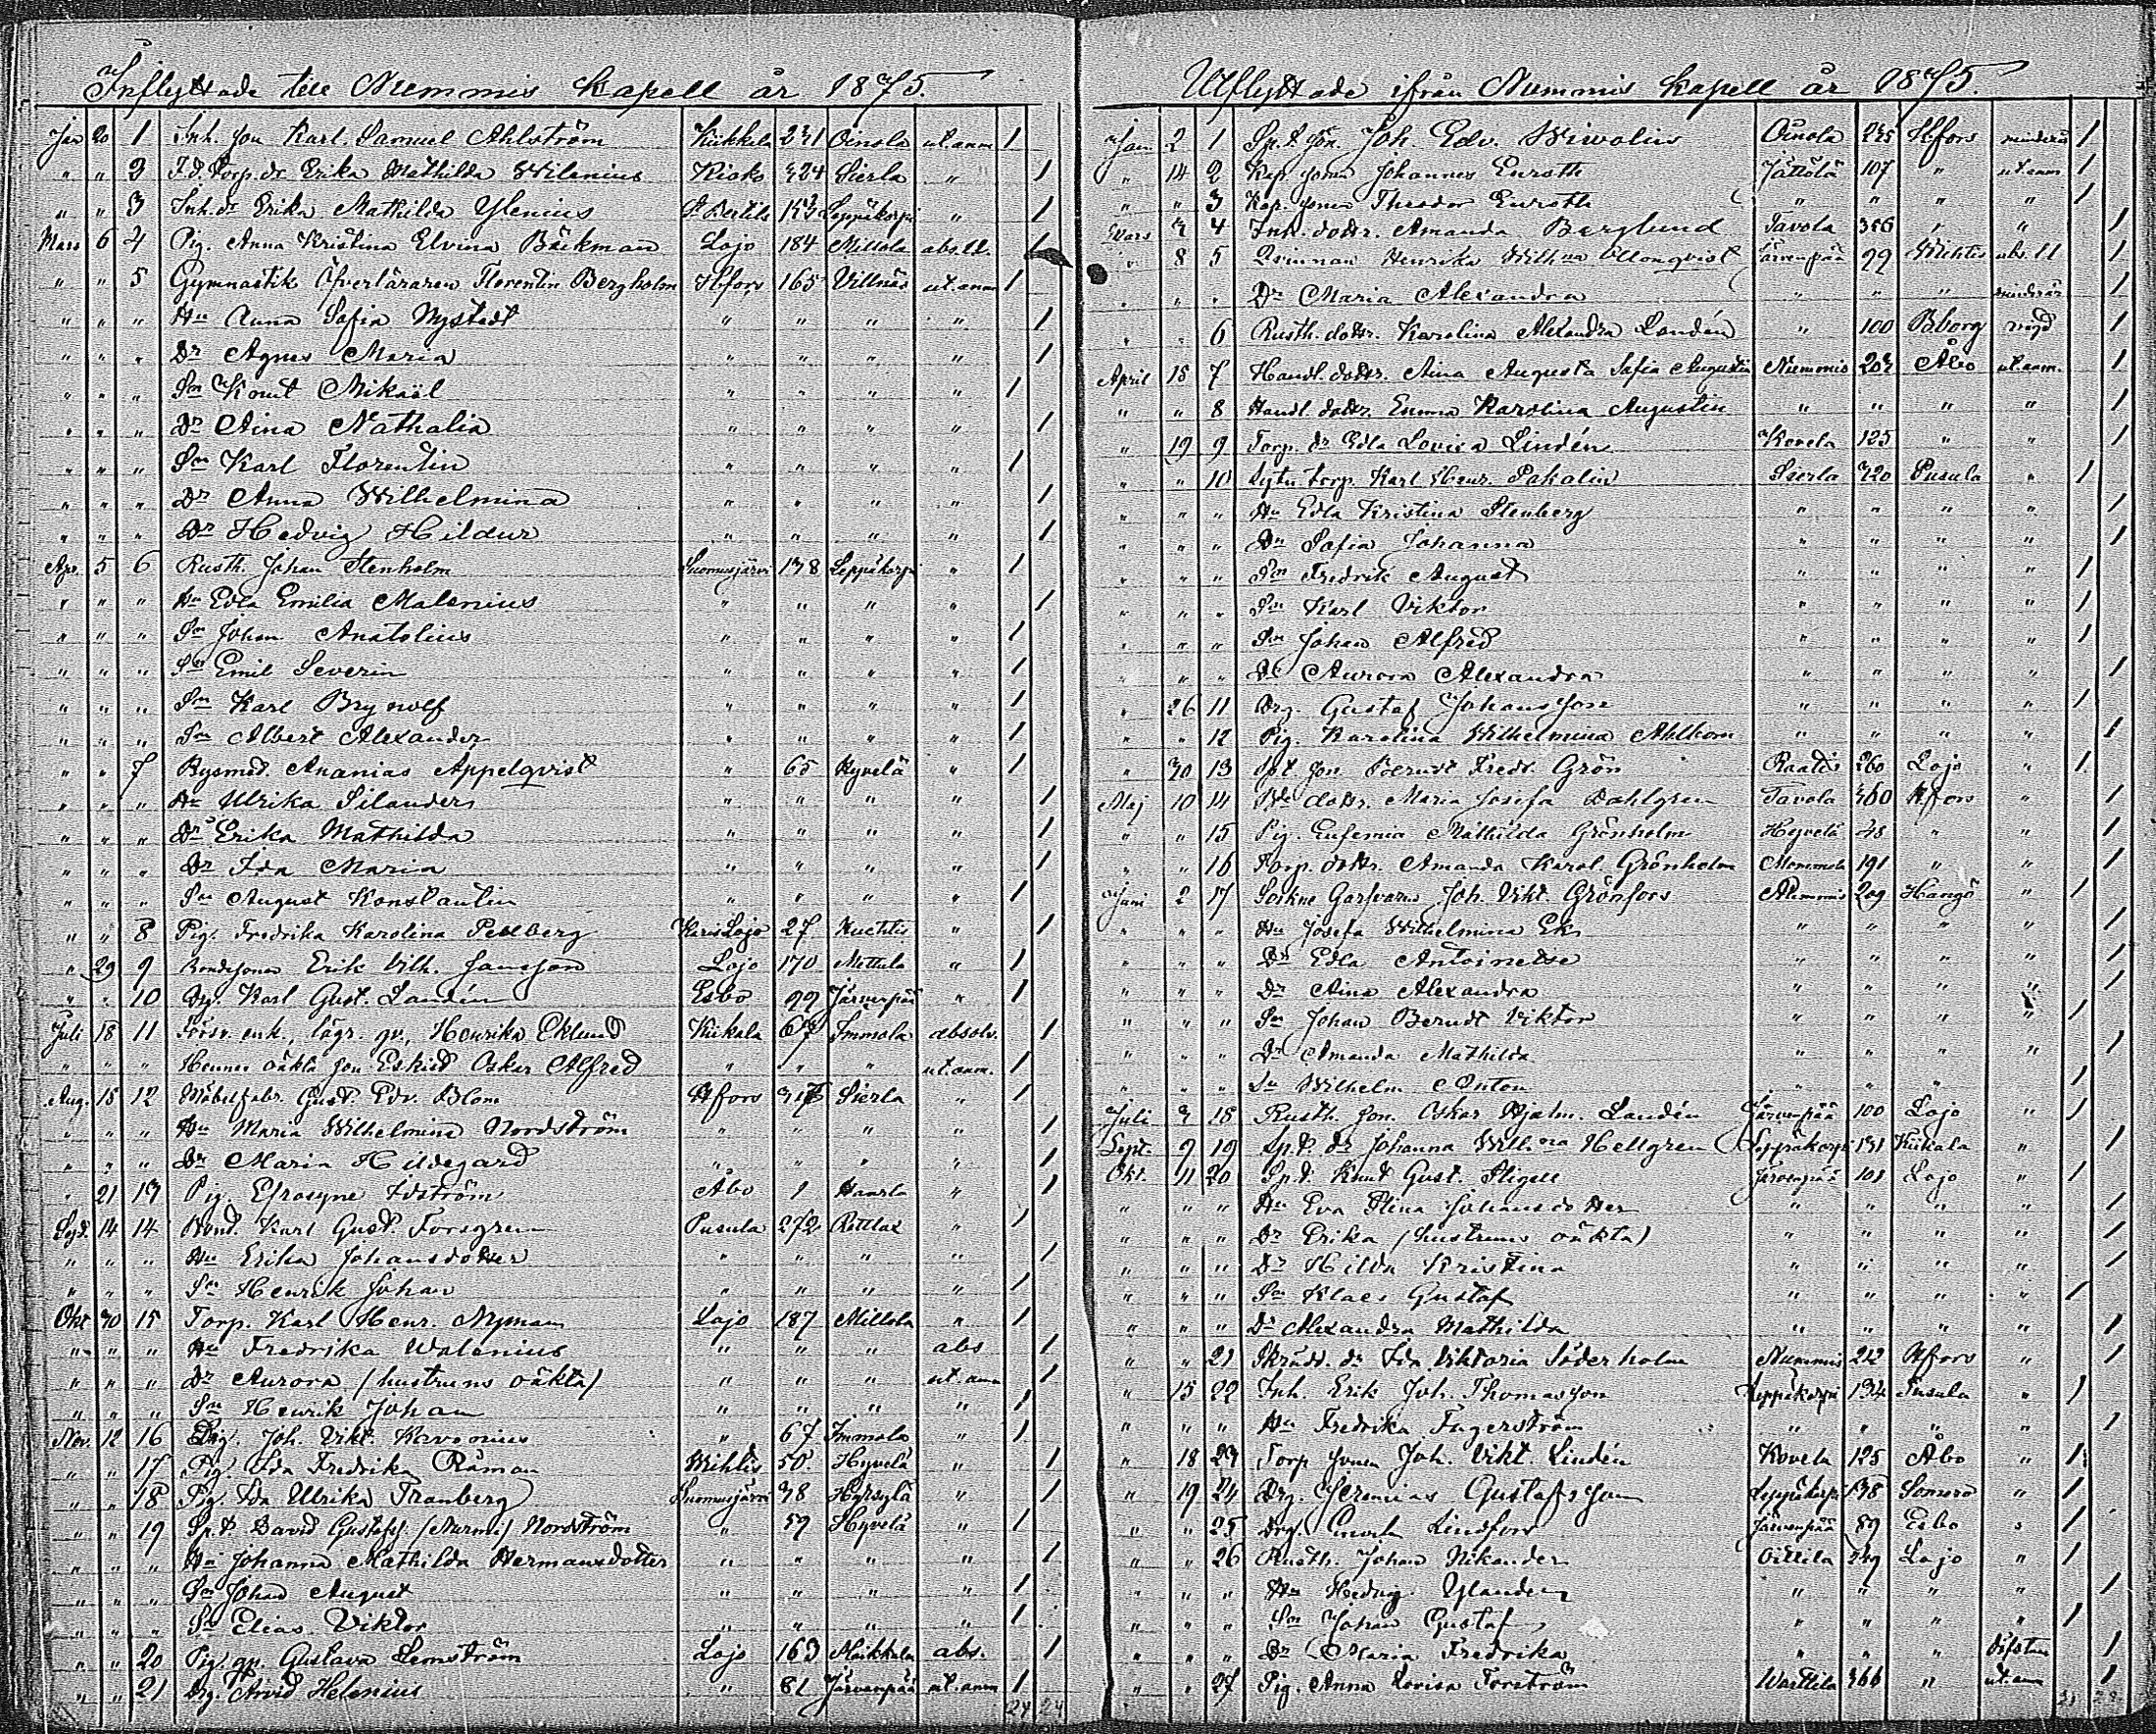 Inflyttade till Nummis Kapell år 1875.
Jan 20 1 Inh. son Karl Samuel Ahlström Kiikkala 231 Oinola ut. anm 1
" " 2 Erika Mathilda Wilenius Kisko 324 Sierla " 1
" " 3 Inh. dr Erika Mathilda Ylenius St Bertils Leppäkorpi " 1
Mars 6 4 Pig. Anna Kristina Elvina Bäckman Lojo 184 Millola abs. 1
" " 5 Gymnastik Öfverläraren Florentin Bergholm Hfors 165 Villnäs ut. anm 1
" " " Hu Anna Sofia Nystedt " " " " 1
" " " Dr Agnes Maria " " " " 1
" " " Sn Knut Mikäil " " " " 1
" " " Dr Aina Nathalia " " " " 1
" " " Sn Karl Florentin " " " " 1
" " " Dr Anna Wilhelmina " " " " 1
" " " Dr Hedvig Hildur " " " " 1
Apr. 5 6 Rusth. Johan Stenholm Suomusjärvi 138 Leppäkorpi " 1
" " " Hu Edla Emilia Malenius " " " " 1
" " " Sn Johan Anatolius " " " " 1
" " " Sn Emil Severin " " " " 1
" " " Sn Karl Brynolf " " " " 1
" " " Sn Albert Alexander " " " " 1
" " 7 Bysmed. Ananias Appelqvist " 65 Hyvelä " 1
" " " Hu Ulrika Silander " " " " 1
" " " Dr Erika Mathilda " " " " 1
" " " Dr Ida Maria " " " " 1
" " " Sn August Konstantin " " " " 1
" " 8 Pig. Fredrika Karolina Pellberg Karis Lojo 27 Huhtis " 1
" 29 9 Bondesonen Erik Vilh. Jansson Lojo 170 Mettula " 1
" " 10 Drg. Karl Gust. Landén Esbo 99 Järvenpää " 1
Juli 18 11 enk., lägr. qv., Henrika Eklund Kiikala 67 Immola absolv. 1
" " " Hennes oäkta son Eskild Oskar Alfred " " " ut. anm. 1
Aug. 15 12 Möbelfabr. Gust Edv. Blom Hfors Sierla " 1
" " " Hu Maria Wilhelmina Nordström " " " " 1
" " " Dr Maria Hildegard " " " " 1
" 21 13 Pig. Efrosyne Idström Åbo 1 Haarla " 1
Sept. 14 14 Bond. Karl Gust. Forsgren Pusula 272 Röttlax " 1
" " " Hu Erika Johansdotter " " " " 1
" " " Sn Henrik Johan " " " " 1
Okt 30 15 Torp. Karl Henr. Nyman Lojo 187 Millola " 1
" " " Hu Fredrika Walenius " " " abs 1
" " " Dr Aurora (hustruns oäkta) " " " ut. anm 1
" " " Sn Henrik Johan " " " " 1
Nov. 12 16 Drg. Joh. Vikt. Kavonius " 67 Immola " 1
" " 17 Pig. Ida Fredrika Råman Wihtis 50 Hyvelä " 1
" " 18 Pig. Ida Ulrika Tranberg Suomusjärvi 38 Hyrsylä " 1
" " 19 Sp.t. David Gustafs. (Nurmi) Nordström " 59 Hyvelä " 1
" " " Hu Johanna Mathilda Hermansdotter " " " " 1
" " " Sn Johan August " " " " 1
" " " Sn Elias Viktor " " " " 1
" " 20 Pig. gp. Gustava Lemström Lojo 163 Maikkala abs. 1
" " 21 Drg. Arvid Helenius " 81 Järvenpää ut. anm 1
24 24
Utflyttade ifrån Nummis Kapell år 1875.
Jan 2 1 Sp.t. son. Joh. Edv. Wiwolin Oinola 235 Hfors minderår 1
" 14 2 Kap. sonen Johannes Enroth Jättölä 107 " ut. anm 1
" " 3 Kap. sonen Theodor Enroth " " " " 1
Mars 3 4 Inh. dottr. Amanda Berglund Tavola 356 " " 1
" 8 5 Qvinnan Henrika Wilh:na Ollonqvist Järvenpää 99 Wichtis abs. ll 1
" " " Dr Maria Alexandra " " " minderår 1
" " 6 Rusth. dottr. Karolina Alexandra Landén " 100 Bborg 1
April 15 7 Handl. dottr. Aina Augusta Sofia Augustin Nummis 203 Åbo ut. anm. 1
" " 8 Handl dottr. Emma Karolina Augustin " " " " 1
" 19 9 Torp. dr Edla Lovisa Lindén Kovela 125 " " 1
" " 10 Torp. Karl Henr. Pakalin Sierla 320 Pusula " 1
" " " Hu Edla Kristina Stenberg " " " " 1
" " " Dr Sofia Johanna " " " " 1
" " " Sn Fredrik August " " " " 1
" " " Sn Karl Viktor " " " " 1
" " " Sn Johan Alfred " " " " 1
" " " Dr Aurora Alexandra " " " " 1
" 26 11 Drg. Gustaf Johansson " " " " 1
" " 12 Pig. Karolina Wilhelmina Ahlbom " " " " 1
" 30 13 Spt. son Berndt Fredr. Grön Raatis 260 Lojo " 1
Maj 10 14 dottr. Maria Josefa Dahlgren Tavola 360 Hfors " 1
" " 15 Pig. Eufemia Mathilda Grönholm Hyvelä 48 " " 1
" " 16 Torp. dottr. Amanda Karol. Grönholm Mommola 191 " " 1
Juni 2 17 Sockne Garfvaren Joh. Vikt. Grönfors Nummis 209 Hangö " 1
" " " Hu Josefa Wilhelmina Ek " " " " 1
" " " Dr Edla Antoinette " " " " 1
" " " Dr Aina Alexandra " " " " 1
" " " Sn Johan Berndt Viktor " " " " 1
" " " Dr Amanda Mathilda " " " " 1
" " " Sn Wilhelm Anton " " " " 1
Juli 3 18 Rusth. son. Oskar Hjalm. Landén Järvenpää 100 Lojo " 1
Sept. 9 19 Sp.t. dr Johanna Wilh:na Hellgren Leppäkorpi 131 Kiikala " 1
Okt. 11 20 Sp.t. Knut Gust. Stigell Järvenpää 101 Lojo " 1
" " " Hu Eva Stina Johansdotter " " " " 1
" " " Dr Erika (hustruns oäkta) " " " " 1
" " " Dr Hilda Kristina " " " " 1
" " " Sn Klaes Gustaf " " " " 1
" " " Dr Alexandra Mathilda " " " " 1
" " 21 Skrädd. dr Ida Viktoria Söderholm Nummis 212 Hfors " 1
" 15 22 Inh. Erik Joh. Thomasson Leppäkorpi 134 Pusula " 1
" " " Hu Fredrika Fagerström " " " " 1
" 18 23 Torp sonen Joh. Vikt. Lindén Kovela 125 Åbo " 1
" 19 24 Drg. Jeremias Gustafsson Leppäkorpi 138 Somero " 1
" " 25 Drg. Lindfors Järvenpää 89 Esbo " 1
" " 26 Rusth. Johan Nikander Oittila 249 Lojo " 1
" " " Hu Hedvig Ylander " " " " 1
" " " Sn Johan Gustaf " " " " 1
" " " Dr Maria Fredrika " " " 1
" " 27 Pig. Anna Lovisa Forström Warttila 366 " ut. anm 1